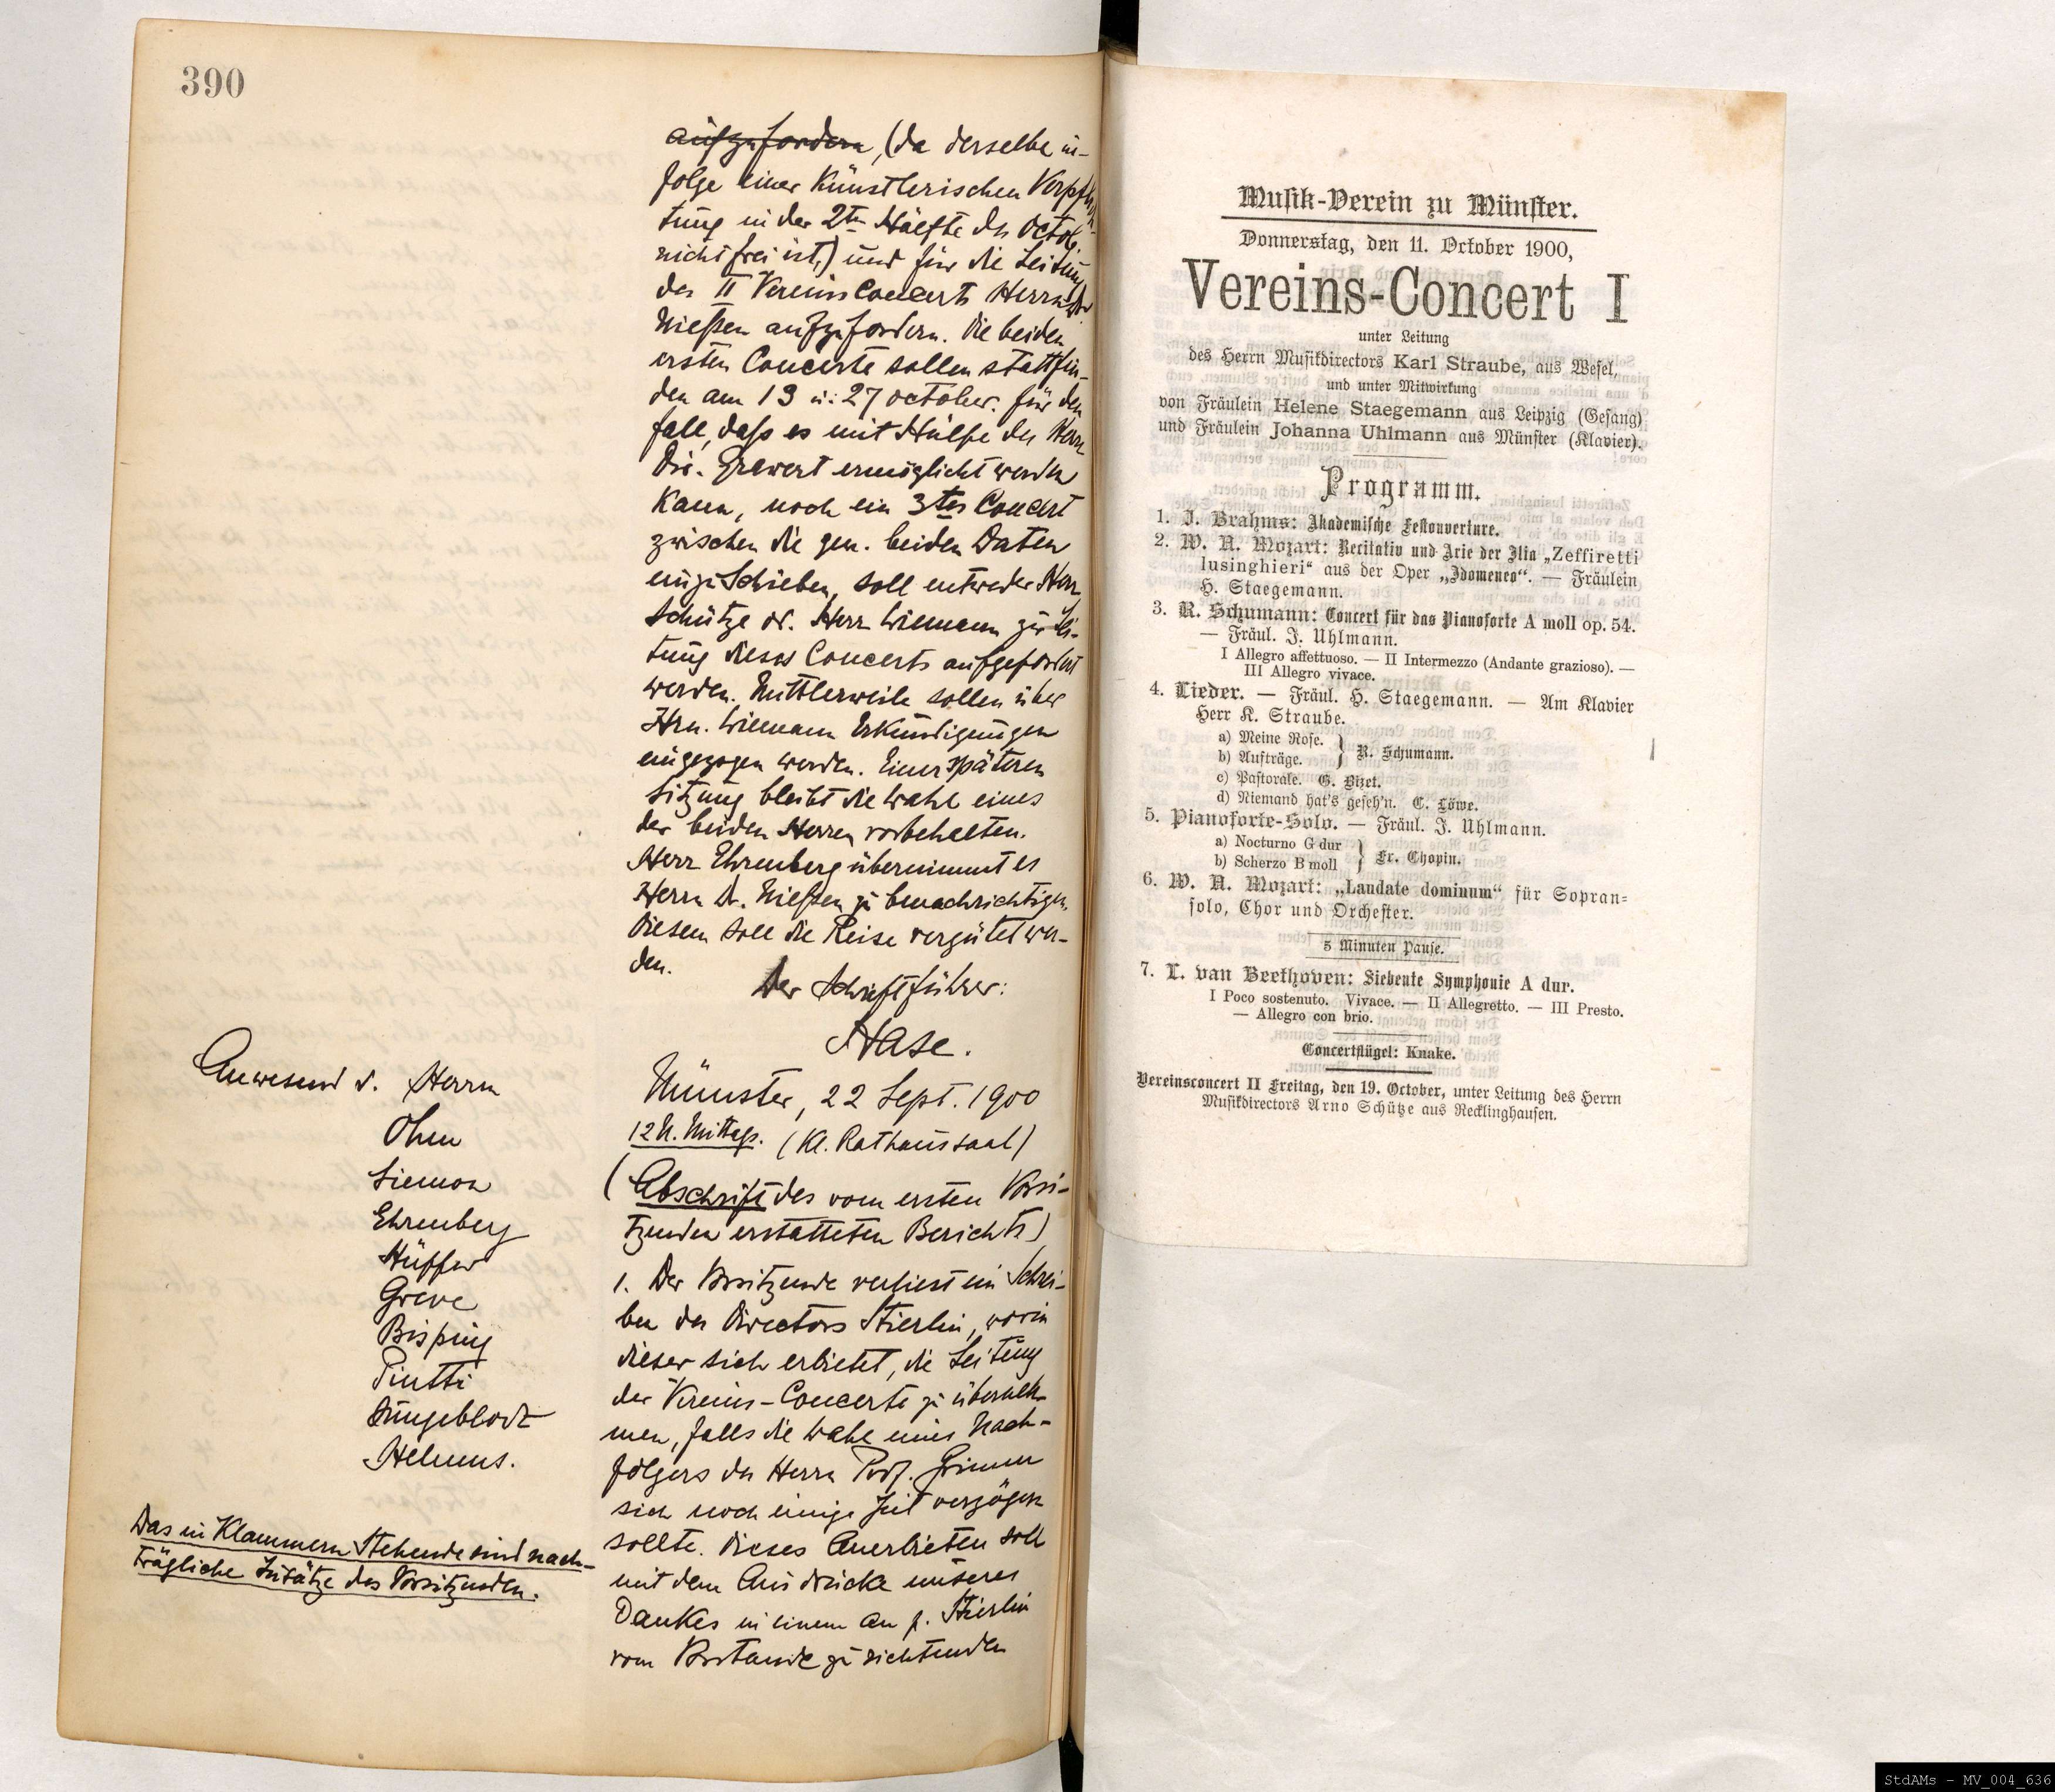 390
aufzufordern, (da derselbe in-
folge einer Künstlerischen Verpflich-
tung in der 2ten Hälfte des Octob.
nicht frei ist,) und für die Leitung
des II Vereinsconcerts Herrn Dr
Nießen aufzufordern. Die beiden
ersten Concerte sollen stattfin-
den am 13 u. 27 october. für den
fall, daß es mit Hülfe des Herrn
Dir. Grawert ermöglicht werden
Kann, noch ein 3tes Concert
zwischen die gen. beiden Daten
einzuschieben, soll entweder Herr
Schütze od. Herr Wiemann zur Lei-
tung dieses Concerts aufgefordert
werden. Mittlerweile sollen über
Hrn. Wiemann Erkundigungen
eingezogen werden. Einer späteren
Sitzung bleibt die Wahl eines
der beiden Herren vorbehalten.
Herr Ehrenberg übernimmt es
Herrn Dr. Nießen zu benachrichtigen.
Diesem soll die Reise vergütet wer-
den.
Der Schriftführer:
Hase.
Münster, 22 Sept. 1900
12 U. Mittags. (Kl. Rathaussaal)
(Abschrift des vom ersten Vorsi-
tzenden erstatteten Berichts)
1. Der Vorsitzende verliest ein Schrei-
ben des Directors Stierlin, worin
dieser sich erbietet, die Leitung
der Vereins-Concerte zu überneh-
men, falls die Wahl eines Nach-
folgers des Herrn Prof. Grimm
sich noch einige Zeit verzögern
sollte. Dieses Anerbieten soll
mit dem Ausdrucke unseres
Dankes in einem an p. Stierlin
vom Vorstande zu richtenden
Anwesend d. Herrn
Ohm
Siemon
Ehrenberg
Hüffer
Greve
Bisping
Piutti
Jungeblodt
Helmus.
Das in Klammern Stehende sind nach-
trägliche Zusätze des Vorsitzenden.
Musik-Verein zu Münster.
Donnerstag, den 11. October 1900,
Vereins-Concert I
unter Leitung
des Herrn Musikdirectors Karl Straube, aus Wesel,
und unter Mitwirkung
von Fräulein Helene Staegemann aus Leipzig (Gesang)
und Fräulein Johanna Uhlmann aus Münster (Klavier).
Programm.
1. J. Brahms: Akademische Festouverture.
2. W. A. Mozart: Recitativ und Arie der Ilia „Zeffiretti
lusinghieri“ aus der Oper „Idomeneo“. — Fräulein
H. Staegemann.
3. R. Schumann: Concert für das Pianoforte A moll op. 54.
— Fräul. J. Uhlmann.
I Allegro affettuoso. — II Intermezzo (Andante grazioso). —
III Allegro vivace.
4. Lieder. — Fräul. H. Staegemann. — Am Klavier
Herr K. Straube.
a) Meine Rose.
b) Aufträge. } R. Schumann.
c) Pastorale. G. Bizet.
d) Niemand hat's geseh'n. C. Löwe.
5. Pianoforte-Solo. — Fräul. J. Uhlmann.
a) Nocturno G dur
b) Scherzo B moll } Fr. Chopin.
6. W. A. Mozart: „Laudate dominum“ für Sopran-
solo, Chor und Orchester.
5 Minuten Pause.
7. L. van Beethoven: Siebente Symphonie A dur.
I Poco sostenuto. Vivace. — II Allegretto. — III Presto.
— Allegro con brio.
Concertflügel: Knake.
Vereinsconcert II Freitag, den 19. October, unter Leitung des Herrn
Musikdirectors Arno Schütze aus Recklinghausen.
StdAMs - MV_004_636